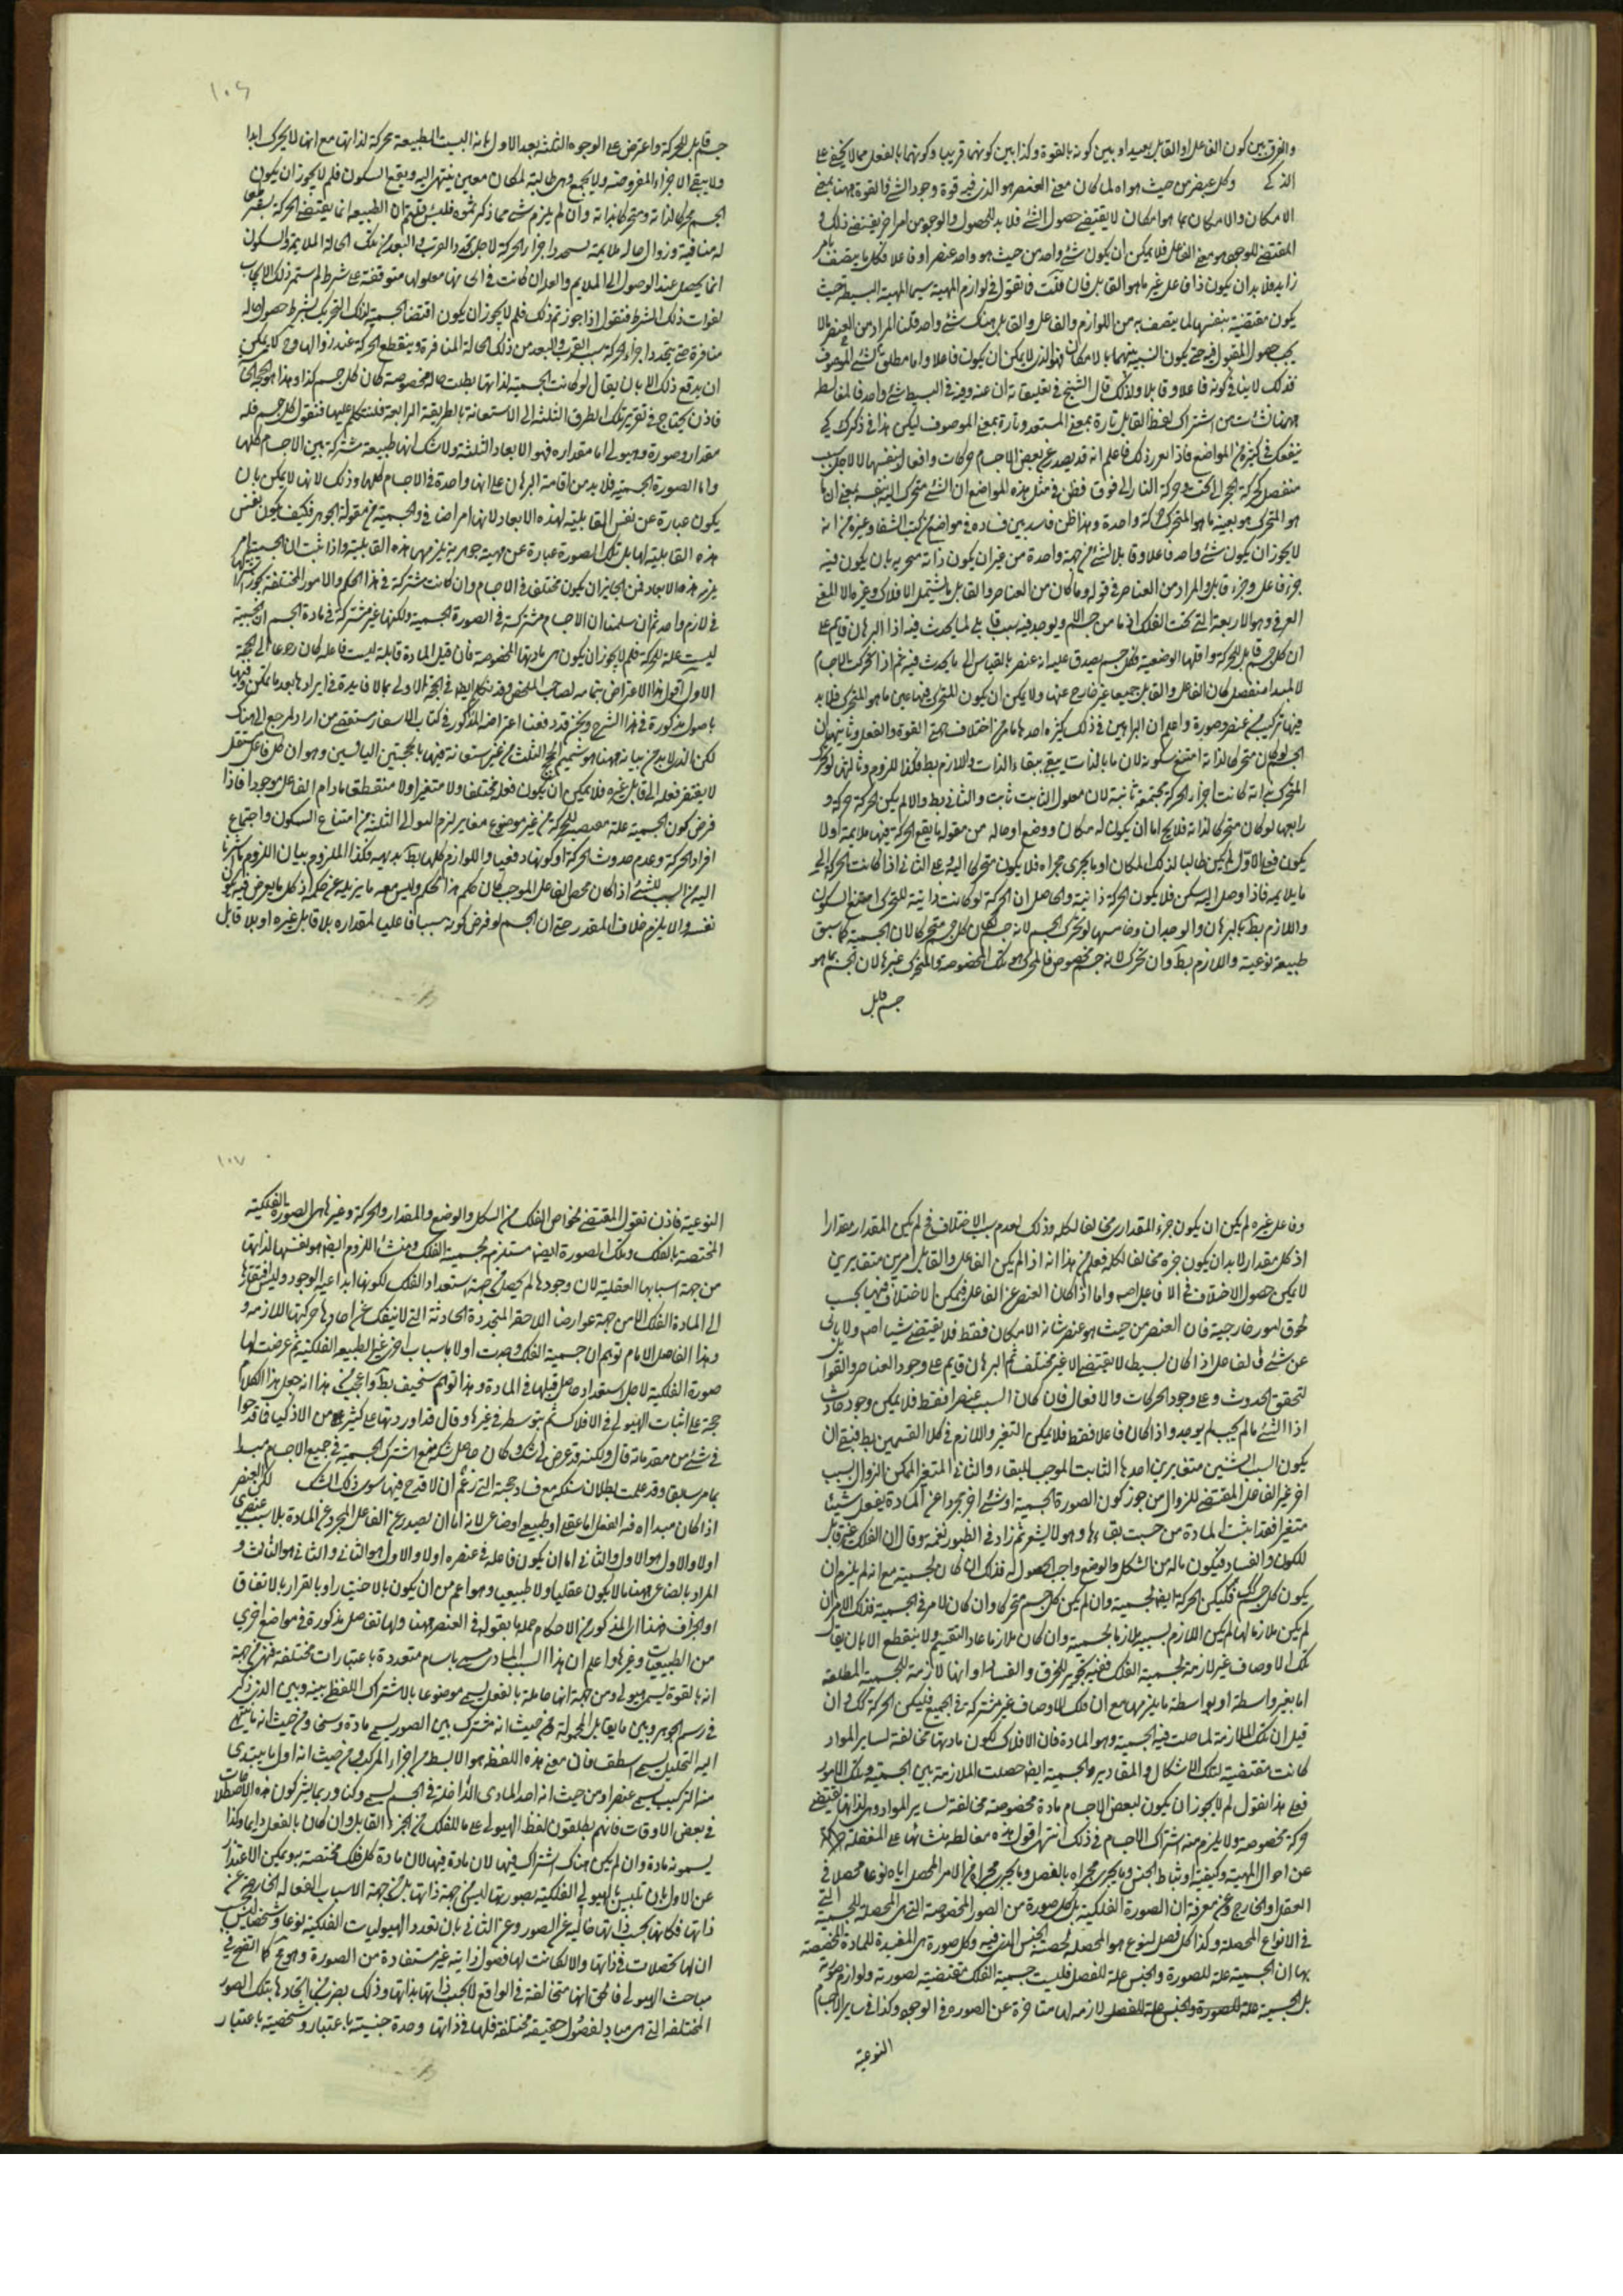 والفرق بين كون الفاعل او القابل بعيدا و بين كونه بالقوة وكذا بين كونهما قريبا وكونهما بالفعل مما لا يخفى على
الذكى وكل عنصر من حيث هو انه لما كان معنى العنصر هو الذى فيه قوة وجود الشئ فالقوة ههنا بمعنى
الامكان والامكان بما هو امكان لا يقتضى حصول الشئ فلا بد للحصول والوجوب من امر اخر يقتضى ذلك و
المقتضى للوجوب هو معنى الفاعل فلا يمكن ان يكون شئ واحد من حيث هو واحد عنصرا وفاعلا فكل ما يتصف بامر
زايد فلا بد ان يكون ذا فاعل غير ما هو القابل فان قلت فما تقول فى لوازم المهية سيما المهية البسيطة حيث
يكون مقتضية بنفسها لما يتصف به من اللوازم والفاعل والقابل هناك شئ واحد قلنا المراد من العنصر ما لا
يجب حصول المقبول فيه حتى يكون النسبة بينهما بالامكان فهو الذى لا يمكن ان يكون فاعلا واما مطلق الشئ الموصوف
فذلك لا ينافى كونه فاعلا وقابلا ولذلك قال الشيخ فى تعليقاته ان عنه وفيه فى البسيط شئ واحد فالمغالطة
ههنا نشأت من اشتراك لفظ القابل تارة بمعنى المستعد وتارة بمعنى الموصوف ليكن هذا فى ذكرك كى
ينفعك فى كثير من المواضع فاذا تقرر ذلك فاعلم انه قد يصدر عن بعض الاجسام حركات وافعال بنفسها لا لاجل سبب
منفصل كحركة الحجر الى تحت وحركة النار الى فوق فظن فى مثل هذه المواضع ان الشئ متحرك اليه بنفسه بمعنى ان ما
هو المتحرك هو بعينه ما هو المحرك حركة واحدة وهذا ظن فاسد بين فساده فى مواضع من كتب الشفا وغيره من انه
لا يجوز ان يكون شئ واحد فاعلا وقابلا لشئ من جهة واحدة من غير ان يكون ذاته متجزية بان يكون فيه
جزء فاعل وجزء قابل والمراد من العناصر فى قوله وما كان من العناصر والقابل ما يشتمل الافلاك وغيره لا المعنى
العرفى وهو الاربعة التى تحت الفلك اذ ما من جسم الا ويوجد فيه سبب قابلى لما يحدث فيه اذا البرهان قايم على
ان كل جسم قابل للحركة واقلها الوضعية فكل جسم يصدق عليه انه عنصر بالقياس الى ما يحدث فيه ثم اذا تحرك الاجسام
لا لمبدا منفصل كان الفاعل والقابل جميعا غير خارج عنها ولا يمكن ان يكون المتحرك فيها عين ما هو المحرك فلا بد
فيها تركيب من عنصر وصورة واعلم ان البراهين فى ذلك كثيرة احدها ما مر من اختلاف جهتى القوة والفعل وثانيها ان
الجسم لو كان متحركا لذاته امتنع سكونه لان ما بالذات يبقى ببقاء الذات واللازم بط فكذا الملزوم وثالثها لو تحرك
المتحرك بذاته كانت اجزاء الحركة مجتمعة ثابتة لان معلول الثابت ثابت والثانى بط والا لم يكن الحركة حركة و
رابعها لو كان متحركا لذاته فلا يخ اما ان يكون له مكان ووضع او حالة من مقولة ما يقع الحركة فيها ملايمة او لا
يكون فعلى الاول لم يكن طالبا لذلك المكان او ما يجرى مجراه فلا يكون متحركا اليه وعلى الثانى اذا كانت الحركة الى
ما يلايمه فاذا وصل اليه سكن فلا يكون الحركة ذاتية والحاصل ان الحركة لو كانت ذاتية للمتحرك امتنع السكون
واللازم بط بالبرهان والوجدان وخامسها لو تحرك الجسم لانه جسم لكان كل جسم متحركا لان الجسمية كما سبق
طبيعة نوعية واللازم بط وان تحرك لانه جسم مخصوص فالمحرك هو تلك الخصوصية والمتحرك غيرها لان الجسم بما هو
جسم قابل
١٠٦
جسم قابل للحركة واعترض على الوجوه الثلثة بعد الاول بانه اليست الطبيعة محركة لذاتها مع انها لا يحرك ابدا
ولا يبقى الاجزاء المفروضة ولا يجتمع وهى طالبة لمكان معين ينتهى اليه ويقع السكون فلم لا يجوز ان يكون
الجسم محركا لذاته ومتحركا بذاته وان لم يلزم شئ مما ذكرتموه فليس قلتم ان الطبيعة انما يقتضى الحركة بشرط
له منافية وزوال حالة ملايمة يتجدد اجزاء الحركة لاجل تجدد القرب والبعد من تلك الحالة الملايمة والسكون
انما يحصل عند الوصول الى الملايم والعلة ان كانت فى ايجابها معلولها متوقفة على شرط لم يستمر ذلك الايجاب
لفوات ذلك الشرط فنقول اذا جوزتم ذلك فلم لا يجوز ان يكون اقتضاء الجسمية لذلك التحريك بشرط حصول حالة
منافرة حتى يتجدد اجزاء الحركة بسبب القرب والبعد من ذلك الحالة المنافرة وينقطع الحركة عند زوالها وح لا يمكن
ان يدفع ذلك الا بان يقال لو كانت الجسمية لذاتها يطلب حالة مخصوصة كان كل جسم كذا وهذا هو الحجة
فاذن يحتاج فى تقرير تلك الطرق الثلثة الى الاستعانة بالطريقة الرابعة فلنتكلم عليها فنقول كل جسم فله
مقدار وصورة وهيولى اما مقداره فهو الابعاد الثلثة ولا شك انها طبيعة مشتركة بين الاجسام كلها
واما الصورة الجسمية فلا بد من اقامة البرهان على انها واحدة فى الاجسام كلها وذلك لانها لا يمكن بان
يكون عبارة عن نفس القابلية لهذه الابعاد لانها امر اضافى والجسمية من مقولة الجوهر فكيف يكون نفس
هذه القابلية لها بل تلك الصورة عبارة عن مهية جوهرية يلزمها هذه القابلية واذا ثبت ان الجسمية امر
يلزمه هذه الابعاد فمن الجايز ان يكون مختلفة فى الاجسام وان كانت مشتركة فى هذا الحكم والامور المختلفة يجوز اشتراكها
فى لازم واحد ثم ان سلمنا ان الاجسام مشتركة فى الصورة الجسمية ولكنها غير مشتركة فى مادة الجسم ان الجسمية
ليست علة للحركة فلم لا يجوز ان يكون هى مادتها المخصوصة فان قيل المادة قابلة ليست فاعلة كان رجوعا الى الحجة
الاولى اقول هذا الاعتراض بتمامه لصاحب الملخص وقد تكلم ايضا فى الحجة الاولى بما لا فايدة فى ايرادها بعد ما تمكن وفيها
باصول مذكورة فى هذا الشرح ونحن قد دفعنا اعتراضه المذكور فى كتاب الاسفار مستقصى من اراد فليرجع الى هناك
لكن الذى لا بد من بيانه ههنا هو تتميم الحجج الثلث من غير استعانة فيها بالحجتين الباقيتين وهو ان كل فاعل مستقل
لا يفتقر فعله الى قابل غيره فلا يمكن ان يكون فعله مختلفا ولا متغيرا ولا منقطعا ما دام الفاعل موجودا فاذا
فرض كون الجسمية علة مقتضية للحركة من غير موضوع مغاير لزم التوالى الثلثة من امتناع السكون واجتماع
افراد الحركة وعدم حدوث الحركة او كونها دفعيا واللوازم كلها بط بديهية فكذا الملزوم بيان اللزوم ما اشرنا
اليه من ان السبب للشئ اذا كان محض الفاعل الموجب كان حكم هذا الحكم وليس معه ما يزيله عن حكمه اذ كل ما يعرض فيه يكون
نفسه والا يلزم خلاف المقدر حتى ان الجسم لو فرض كونه سببا فاعليا لمقداره بلا قابل غيره او بلا قابل
وفاعل غيره لم يكن ان يكون جزء المقدار مخالفا لكله وذلك لعدم سبب الاختلاف فح لم يكن المقدار مقدارا
اذ كل مقدار لا بد ان يكون جزءه مخالفا لكله فعلم من هذا انه اذا لم يكن الفاعل والقابل امرين متغايرين
لا يمكن حصول الاختلاف فى الافاعيل اصلا واما اذا كان العنصر غير الفاعل فيمكن الاختلاف فيها بحسب
لحوق امور خارجية فان العنصر من حيث هو عنصر شانه الامكان فقط فلا يقتضى شيئا اصلا ولا يابى
عن شئ فالفاعل اذا كان بسيطا لا يقتضى الا غير مختلف ثم البرهان قايم على وجود العناصر والقوابل
لتحقق الحدوث وعلى وجود الحركات والافعال فان كان السبب عنصرا فقط فلا يمكن وجود حادث
اذا الشئ ما لم يجب لم يوجد واذا كان فاعلا فقط فلا يمكن التغير واللازم فى كلا القسمين بط فبقى ان
يكون السبب شيئين متغايرين احدهما الثابت الموجب للبقاء والثانى المتغير الممكن الزوال بسبب
اخر غير الفاعل المقتضى للزوال من جوز كون الصورة الجسمية او شئ اخر مجردا عن المادة يفعل شيئا
متغيرا فقد اثبت المادة من حسبت بقاءها وهو لا يشعر ثم زاد فى الطنبور نغمة وقال ان الفلك غير قابل
للكون والفساد فيكون ماله من الشكل والوضع واجب الحصول له فذلك ان كان لجسمية مع انه لم يلزم ان
يكون كل جسم كك فليكن الحركة ايضا لجسمية وان لم يكن كل جسم متحركا وان كان لامر فى الجسمية فذلك الامر ان
لم يكن ملازما لها لم يكن اللازم بسببه ملازما لجسمية وان كان ملازما عاد التقسيم ولا ينقطع الا بان يقال
تلك الاوصاف غير لازمة لجسمية الفلك ففيه تجويز الخرق والفساد او انها لازمة للجسمية المطلقة
اما بغير واسطة او بواسطة ما يلازمها مع ان تلك الاوصاف غير مشتركة فى الجميع فليكن الحركة كك وان
قيل ان تلك الملازمة لما حلت فيه الجسمية وهو المادة فان الافلاك لكون مادتها مخالفة لساير المواد
كانت مقتضية لتلك الاشكال والمقادير والجسمية ايضا حصلت الملازمة بين الجسمية وتلك الامور
فعلى هذا نقول لم لا يجوز ان يكون لبعض الاجسام مادة مخصوصة مخالفة لساير المواد وهى لذاتها تقتضى
حركة مخصوصة ولا يلزم منه اشتراك الاجسام فى ذلك انتهى اقول هذه مغالطة منشأها على الغفلة
عن احوال المهية وكيفية ارتباط الجنس وما يجرى مجراه بالفصل وما يجرى مجراه من الامر المحصل اياه نوعا محصلا فى
العقل او الخارج وعن معرفة ان الصورة الفلكية بل كل صورة من الصور المخصوصة التى هى المحصلة للجسمية
فى الانواع المحصلة وكذا كل فصل لنوع هو المحصل لحصة الجنس التى فيه وكل صورة هى المفيدة للمادة المختصة
بها ان الجسمية علة للصورة والجنس علة للفصل فليست جسمية الفلك مقتضية لصورته ولوازم صورته
بل الجسمية لازمة لها متاخرة عن الصورة فى الوجود وكذا فى ساير الاجسام
النوعية
١٠٧
النوعية فاذن نقول المقتضى لخواص الفلك من الشكل والوضع والمقدار والحركة وغيرها هى الصورة الفلكية
المختصة بالفلك وتلك الصورة ايضا مستلزمة لجسمية الفلك ومنشأ اللزوم ايضا هو نفسها لذاتها
من جهة اسبابها العقلية لان وجودها لم يحصل من جهة استعداد الفلك لكونها ابداعية الوجود وليس افتقارها
الى المادة الفلك الا من جهة عوارضها اللاحقة المتجددة الحادثة التى لا ينفك عن احادها حركتها اللازمة و
وهذا الفاضل الامام توهم ان جسمية الفلك وجدت اولا باسباب اخر غير الطبيعة الفلكية ثم عرضت لها
صورة الفلكية لاجل استعداد حاصل قبلها فى المادة وهذا توهم سخيف بط واعجب من هذا انه جعل هذا الكلام
حجة على اثبات الهيولى فى الافلاك ثم بتوسطه فى غيرها وقال قد اوردتها على كثير من الاذكيا فما قدحوا
فى شئ من مقدماته قال ولكنه قد عرض لى شك وكان حاصل شكه منع اشتراك الجسمية فى جميع الاجسام مبدا
بما مر سابقا وقد علمت بطلان شكه مع فساد حجته التى زعم ان لا قدح فيها سوى ذلك الشك لكن العنصر
اذا كان مبداه فيه الفعل اما عقلى او طبيعى او صناعى لانه اما ان يصدر عن الفاعل المجرد عن المادة بلا سبب عنصرى
اولا والاول هو الاول والثانى اما ان يكون فاعله فى عنصره اولا والاول هو الثانى والثانى هو الثالث و
المراد بالصناعى ههنا ما لا يكون عقليا ولا طبيعيا وهو اعم من ان يكون بالاختيار او بالقرار بالاتفاق
او الجزاف فهذا المذكور من الاحكام جملة ما يقوله فى العنصر ههنا ولها تفاصيل مذكورة فى مواضع اخرى
من الطبيعيات وغيرها واعلم ان هذا السبب المادى يسمى باسام متعددة باعتبارات مختلفة فمن جهة
انه بالقوة يسمى هيولى ومن جهة انها حاملة بالفعل يسمى موضوعا بالاشتراك اللفظى بينه وبين الذى ذكر
فى رسم الجوهر وبين ما يقابل المحمول ومن حيث انه مشترك بين الصور يسمى مادة وسنخا ومن حيث انه ما ينتهى
اليه التحليل يسمى اسطقسا فان معنى هذه اللفظة هو الابسط من اجزاء المركب ومن حيث انه اول ما يبتدى
منه التركيب يسمى عنصرا ومن حيث انه احد المبادى الداخلة فى الجسم يسمى ركنا وربما يشركون هذه الاصطلاحات
فى بعض الاوقات فانهم يطلقون لفظ الهيولى على ما للفلك من الجزء القابل وان كان بالفعل دايما وكذا
يسمونه مادة وان لم يكن هناك اشتراك فيها لان مادة فيها لان مادة كل فلك مختصة به ويمكن الاعتذار
عن الاول بان تلبس الهيولى الفلكية بصورتها ليس من جهة ذاتها بل من جهة الاسباب الفعالة الخارجة عن
ذاتها فكانها بحسب ذاتها خالية عن الصور وعن الثانى بان تعدد الهيوليات الفلكية نوعا وشخصا ليس بحسب
ان لها تحصلات فى ذاتها والا لكانت لها فصول ذاتية غير مستفادة من الصورة وهو مح كما اتضح فى
مباحث الهيولى فالحق انها متخالفة فى الواقع لا بحسب ذاتها بذاتها وذلك بضرب من اتحادها بتلك الصور
المختلفة التى هى مباد لفصول حقيقة مختلفة فلها فى ذاتها وحدة جنسية باعتبار وشخصية باعتبار